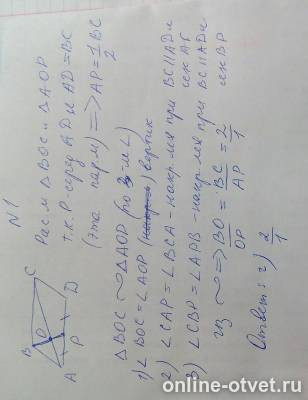 N1
B
C
O
A
P
D
Рас-м △BOC и △AOP
т.к. P-серед AD и AD=BC
(эта пар-м) => AP=1/2 BC
△BOC ~ △AOP (по 3-м ∠)
1) ∠BOC=∠AOP вертик
2) ∠CAP=∠BCA-накр леж при BC||AD и
сек AC
3) ∠CBP=∠APB-накр леж при BC||AD и
сек BP
из ~ => BO/OP = BC/AP = 2/1
Ответ: г) 2/1
online-otvet.ru